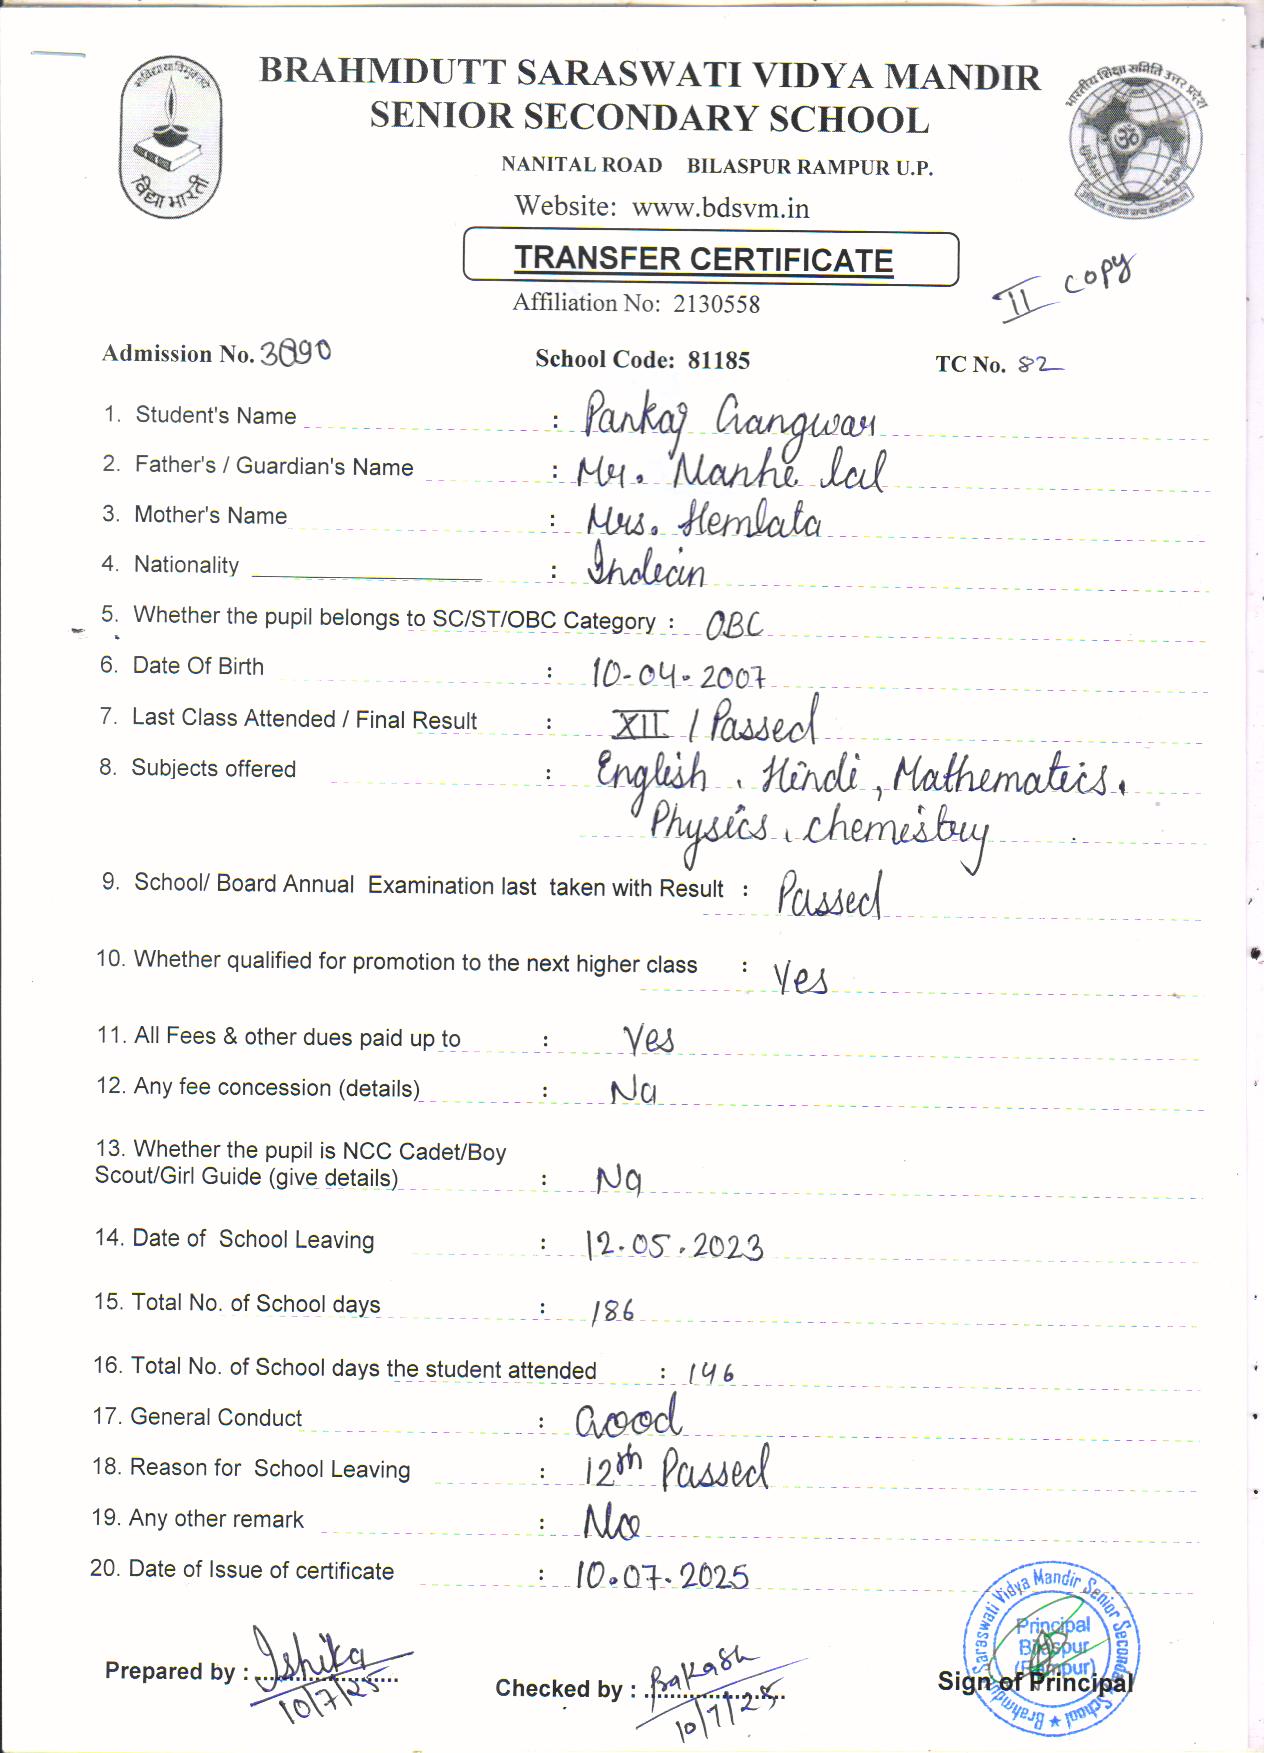 BRAHMDUTT SARASWATI VIDYA MANDIR
SENIOR SECONDARY SCHOOL
NANITAL ROAD BILASPUR RAMPUR U.P.
Website: www.bdsvm.in
विद्या भारती
भारतीय शिक्षा समिति उत्तर प्रदेश
TRANSFER CERTIFICATE
II copy
Affiliation No: 2130558
Admission No. 3090 School Code: 81185 TC No. 82
1. Student's Name : Pankaj Gangwar
2. Father's / Guardian's Name : Mr. Nanhe lal
3. Mother's Name : Mrs. Hemlata
4. Nationality : Indian
5. Whether the pupil belongs to SC/ST/OBC Category : OBC
6. Date Of Birth : 10-04-2007
7. Last Class Attended / Final Result : XII / Passed
8. Subjects offered : English, Hindi, Mathematics,
Physics, chemistry
9. School/ Board Annual Examination last taken with Result : Passed
10. Whether qualified for promotion to the next higher class : Yes
11. All Fees & other dues paid up to : Yes
12. Any fee concession (details) : Na
13. Whether the pupil is NCC Cadet/Boy
Scout/Girl Guide (give details) : Na
14. Date of School Leaving : 12.05.2023
15. Total No. of School days : 186
16. Total No. of School days the student attended : 146
17. General Conduct : Good
18. Reason for School Leaving : 12th Passed
19. Any other remark : No
20. Date of Issue of certificate : 10.07.2025
Prepared by : Ishika
10/7/25
Checked by : Bakash
10/7/25
Sign of Principal
Principal
Bilaspur
(Rampur)
Brahmdutt Saraswati Vidya Mandir Senior Secondary School